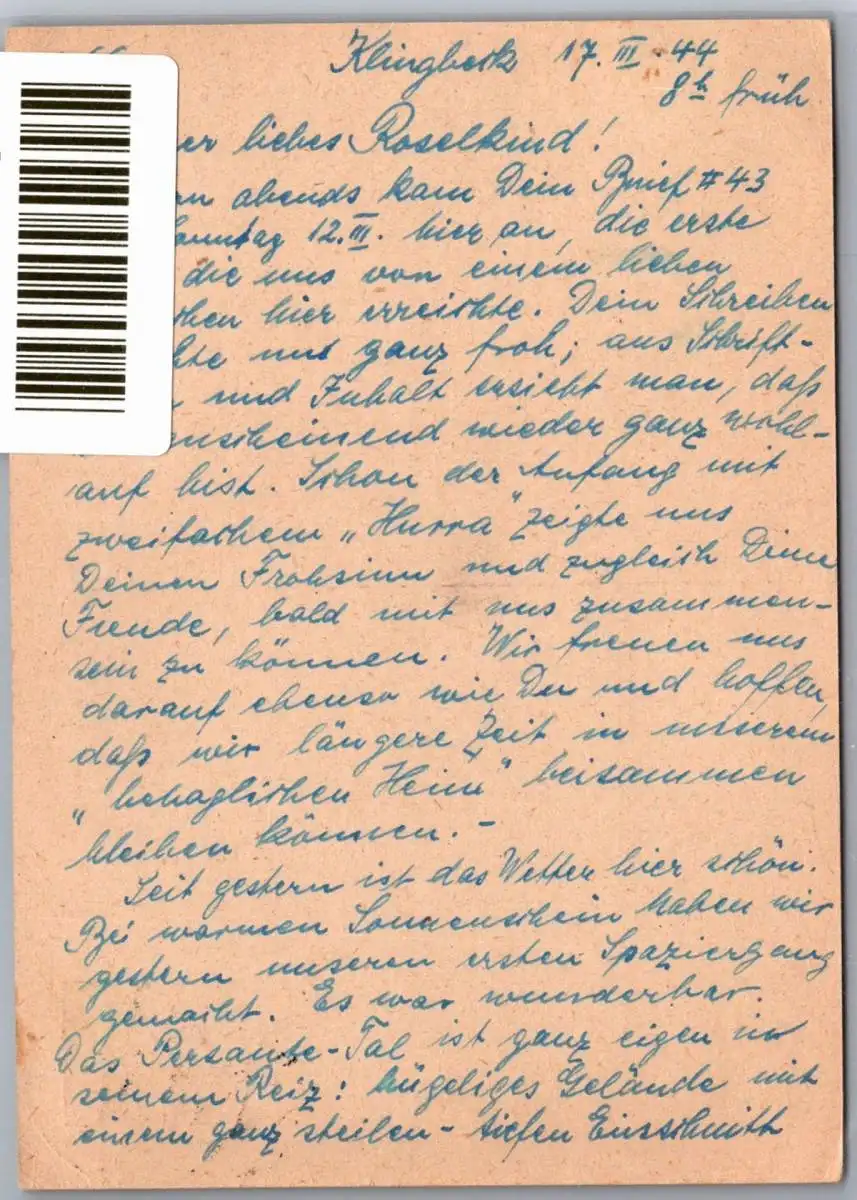 Klingbeck 17. III. 44
8h früh
er liebes Roselkind!
n abends kam Dein Brief #43
onntag 12. III. hier an, die erste
die uns von einem lieben
chen hier erreichte. Dein Schreiben
hte uns ganz froh; aus Schrift-
und Inhalt ersieht man, daß
enscheinend wieder ganz wohl-
auf bist. Schon der Anfang mit
zweifachem „Hurra" zeigte uns
Deinen Frohsinn und zugleich Deine
Freude, bald mit uns zusammen-
sein zu können. Wir freuen uns
darauf ebenso wie Du und hoffen,
daß wir längere Zeit in unserem
„behaglichen Heim" beisammen
bleiben können. -
Seit gestern ist das Wetter hier schön.
Bei warmen Sonnenschein haben wir
gestern unseren ersten Spaziergang
gemacht. Es war wunderbar.
Das Persante-Tal ist ganz eigen in
seinem Reiz: hügeliges Gelände mit
einem ganz steilen-tiefen Einschnitt